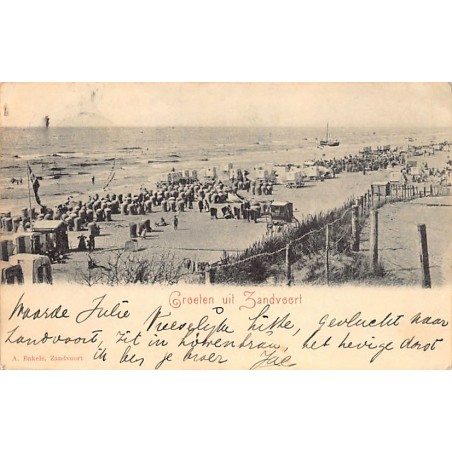 Groeten uit Zandvoort
Waarde Julie Vreeselijke hitte, gevlucht naar
Zandvoort, zit in Löwenbräu, het hevige dorst
ik ben je broer Jac
A. Bakels, Zandvoort